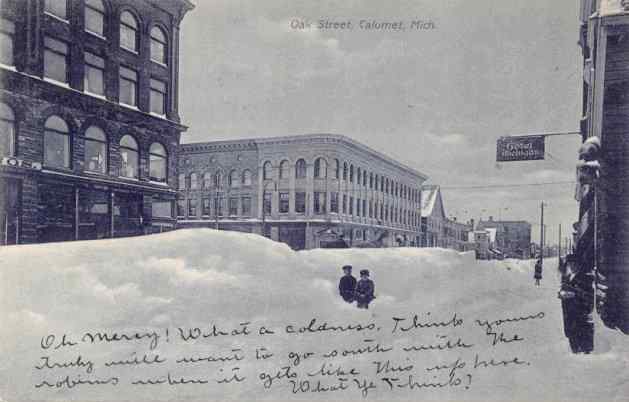 Oak Street, Calumet, Mich.
Hotel
Michigan
Oh Mercy! What a coldness. Think yours
truly will want to go south with the
robins when it gets like this up here.
What Ye Think?